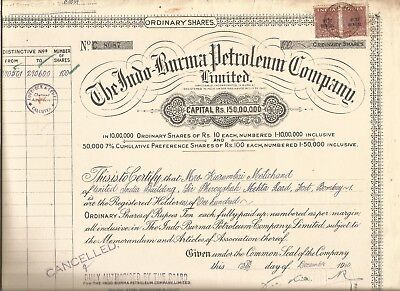 ORDINARY SHARES.
DISTINCTIVE Nos
NUMBER OF SHARES
FROM TO
210501 210600 100
No C 8087
ORDINARY SHARES.
The Indo-Burma Petroleum Company,
Limited.
CAPITAL RS. 150,00,000
IN 10,00,000 ORDINARY SHARES OF RS 10 EACH, NUMBERED 1-10,00,000 INCLUSIVE
AND
50,000 7% CUMULATIVE PREFERENCE SHARES OF RS 100 EACH, NUMBERED 1-50,000 INCLUSIVE.
This is to Certify that Mrs. Motichand
of United India Building, Sir Pherozshah Mehta Road, Fort, Bombay-1.
are the Registered Holders of One hundred
ORDINARY Share of Rupees Ten each fully paid up numbered as per margin,
all inclusive in THE INDO BURMA PETROLEUM COMPANY LIMITED, subject to
the Memorandum and Articles of Association thereof.
Given under the Common Seal of the Company
this day of December
CANCELLED.
DULY AUTHORISED BY THE BOARD
FOR THE INDO-BURMA PETROLEUM COMPANY, LIMITED.